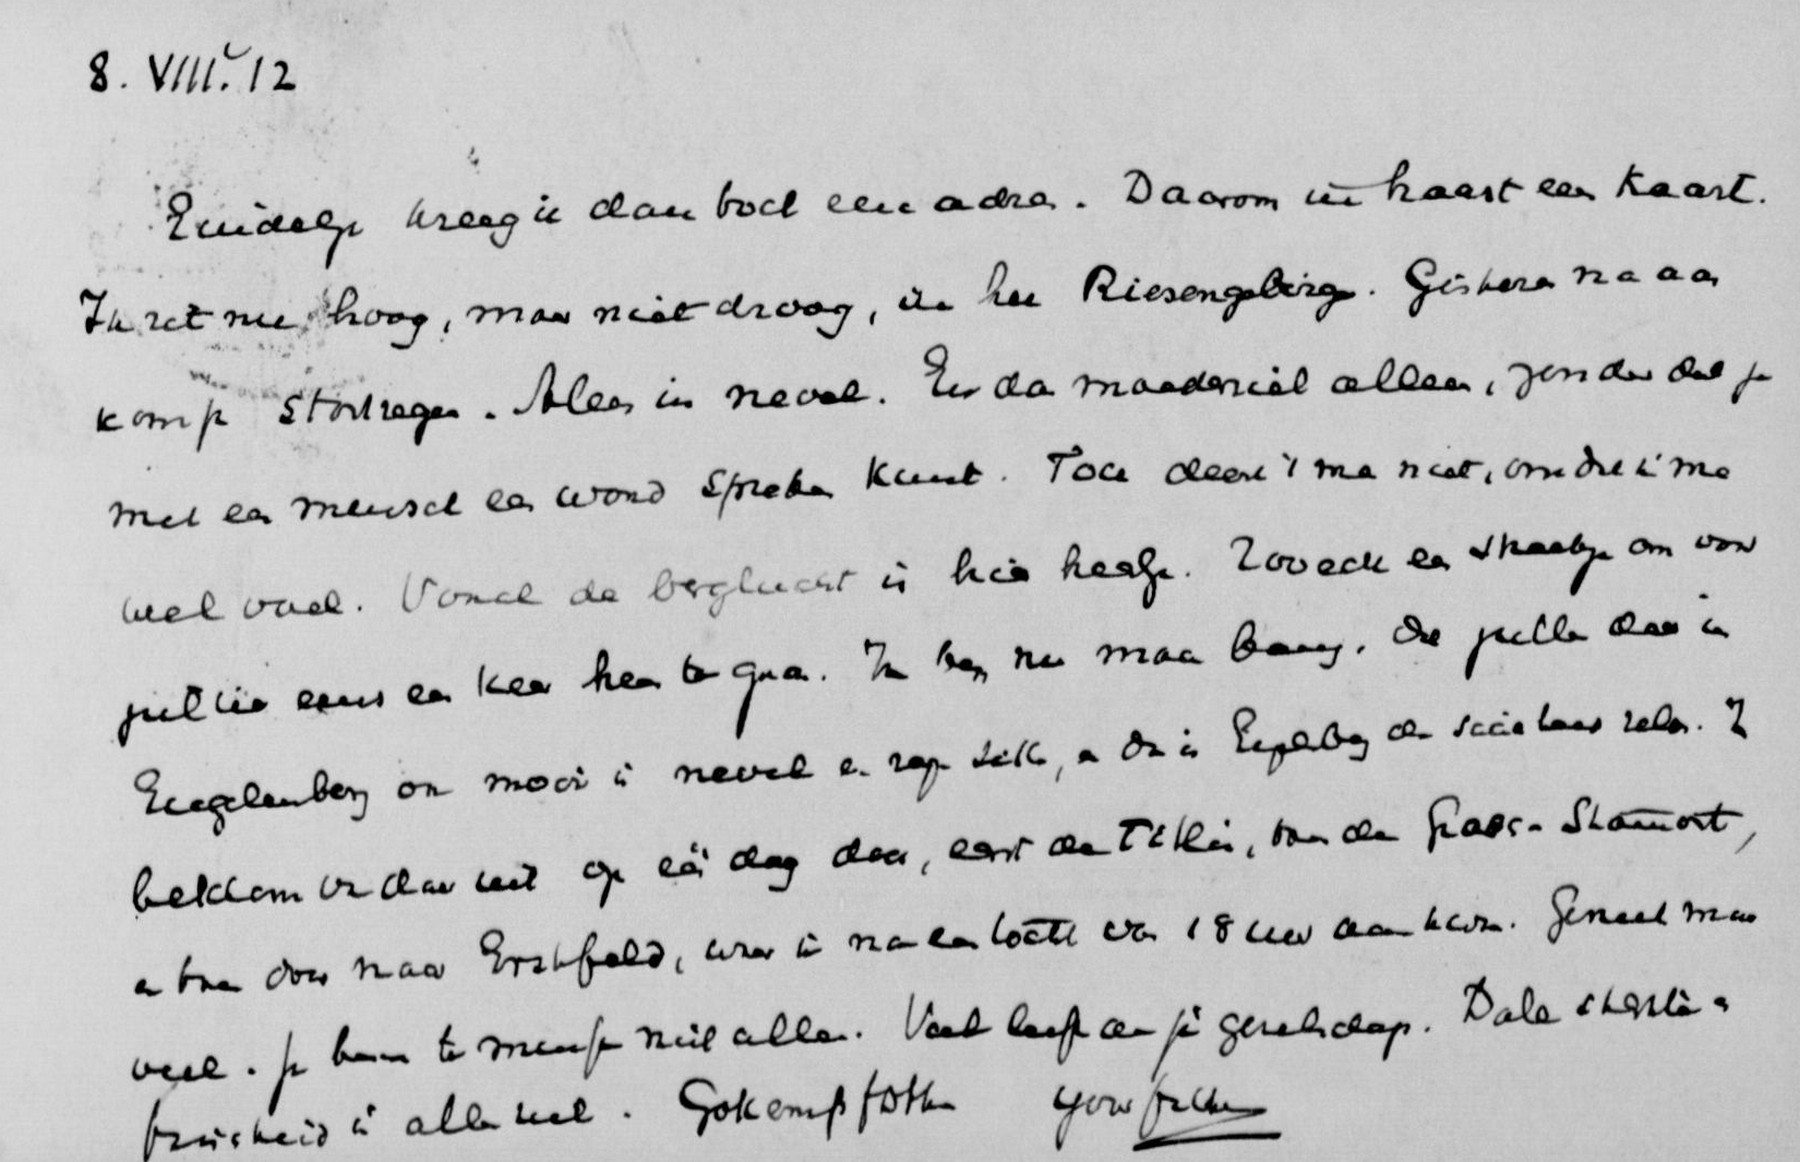 8. VIII. 12
Eindelijk kreeg ik dan toch een adres. Daarom in haast een Kaart.
Ik zit nu hoog, maar niet droog, in het Riesengebirge. Gisteren na aan
komst stortregen. Alles in nevel. En da moederziel alleen, zonder dat je
met een mensch een woord spreken kunt. Toch deert 't me niet, omdat ik me
wel voel. Vooral de berglucht is hier heerlijk. een om voor
jullie eens een keer heen te gaan. Ik ben nu maar bang, dat jullie daar in
Engelenberg ook mooi in nevel en zitten, en dan is Engelberg zelve. Ik
beklom van daar uit op één dag den, eerst den Titlis, toen den Stannort,
en toen door naar Erstfeld, waar ik na een tocht van 18 uur aankwam. Geniet maar
veel. Je bent ten minste niet alleen. Veel liefs aan je gezelschap.
frischheid is alles wel. your father